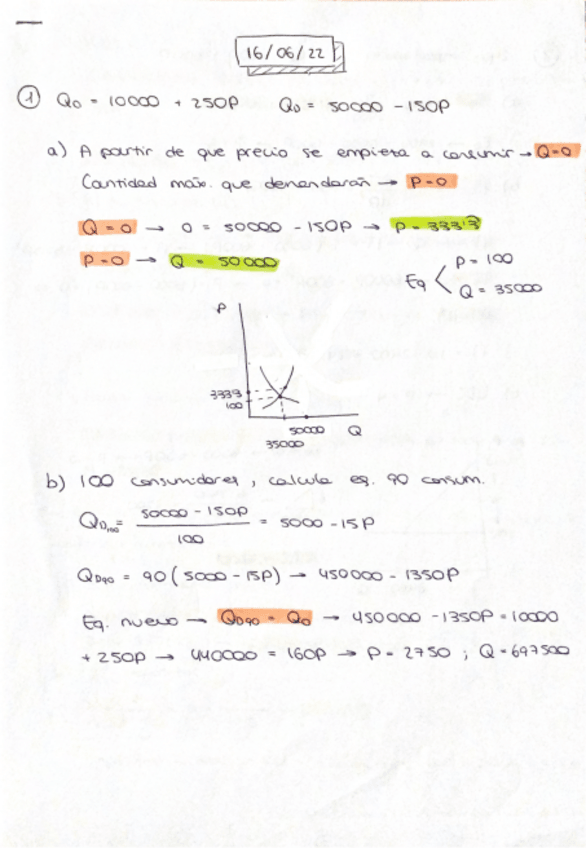 16/06/22
① Qo = 10000 + 250P Qo = 50000 - 150P
a) A partir de que precio se empieza a consumir → Q=0
Cantidad max. que demandaran → P=0
Q=0 → 0 = 50000 - 150P → P=333'3
P=0 → Q = 50000
Eq < P=100
Q = 35000
P
333'3
100
50000 Q
35000
b) 100 consumidores, calcula eq. 90 consum.
QD100= 50000 - 150P / 100 = 5000 - 15P
QD90 = 90 (5000 - 15P) → 450000 - 1350P
Eq. nuevo → QD90 = Qo → 450000 - 1350P = 10000
+ 250P → 440000 = 160P → P = 2750 ; Q = 697500